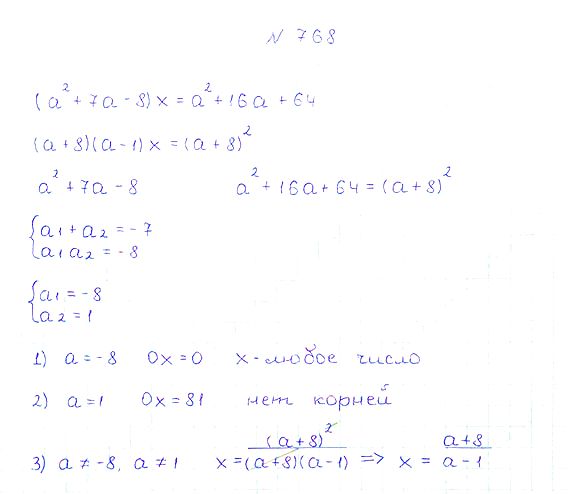 N 768
(a² + 7a - 8) x = a² + 16a + 64
(a + 8)(a - 1) x = (a + 8)²
a² + 7a - 8    a² + 16a + 64 = (a + 8)²
{ a₁ + a₂ = - 7
a₁ a₂ = - 8
{ a₁ = - 8
a₂ = 1
1) a = -8    0x = 0    x - любое число
2) a = 1    0x = 81    нет корней
3) a ≠ -8, a ≠ 1    x = (a + 8)² / (a + 8)(a - 1) => x = a + 8 / a - 1